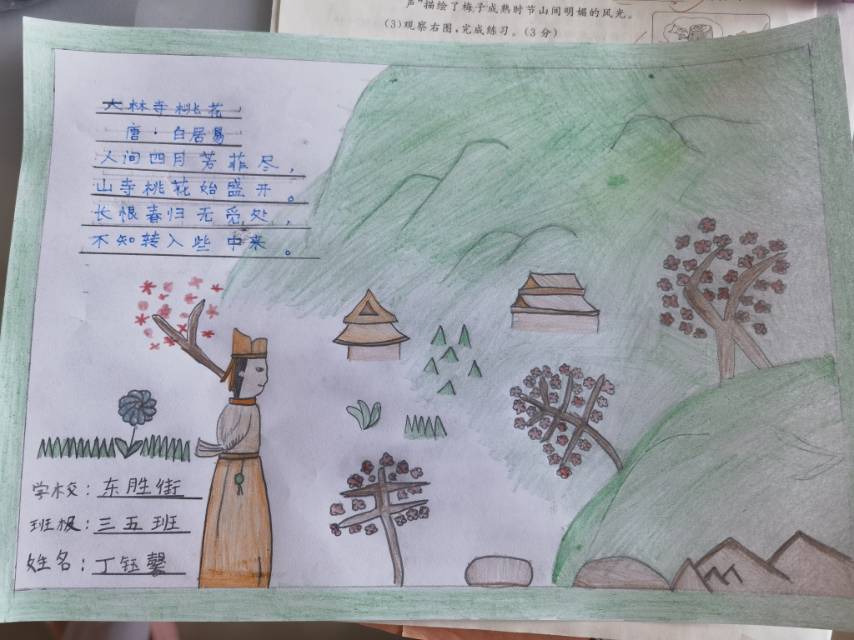 声”描绘了梅子成熟时节山间明媚的风光。
(3)观察右图,完成练习。(3分)
大林寺桃花
唐·白居易
人间四月芳菲尽,
山寺桃花始盛开。
长恨春归无觅处,
不知转入些中来。
学校:东胜街
班级:三五班
姓名:丁钰馨